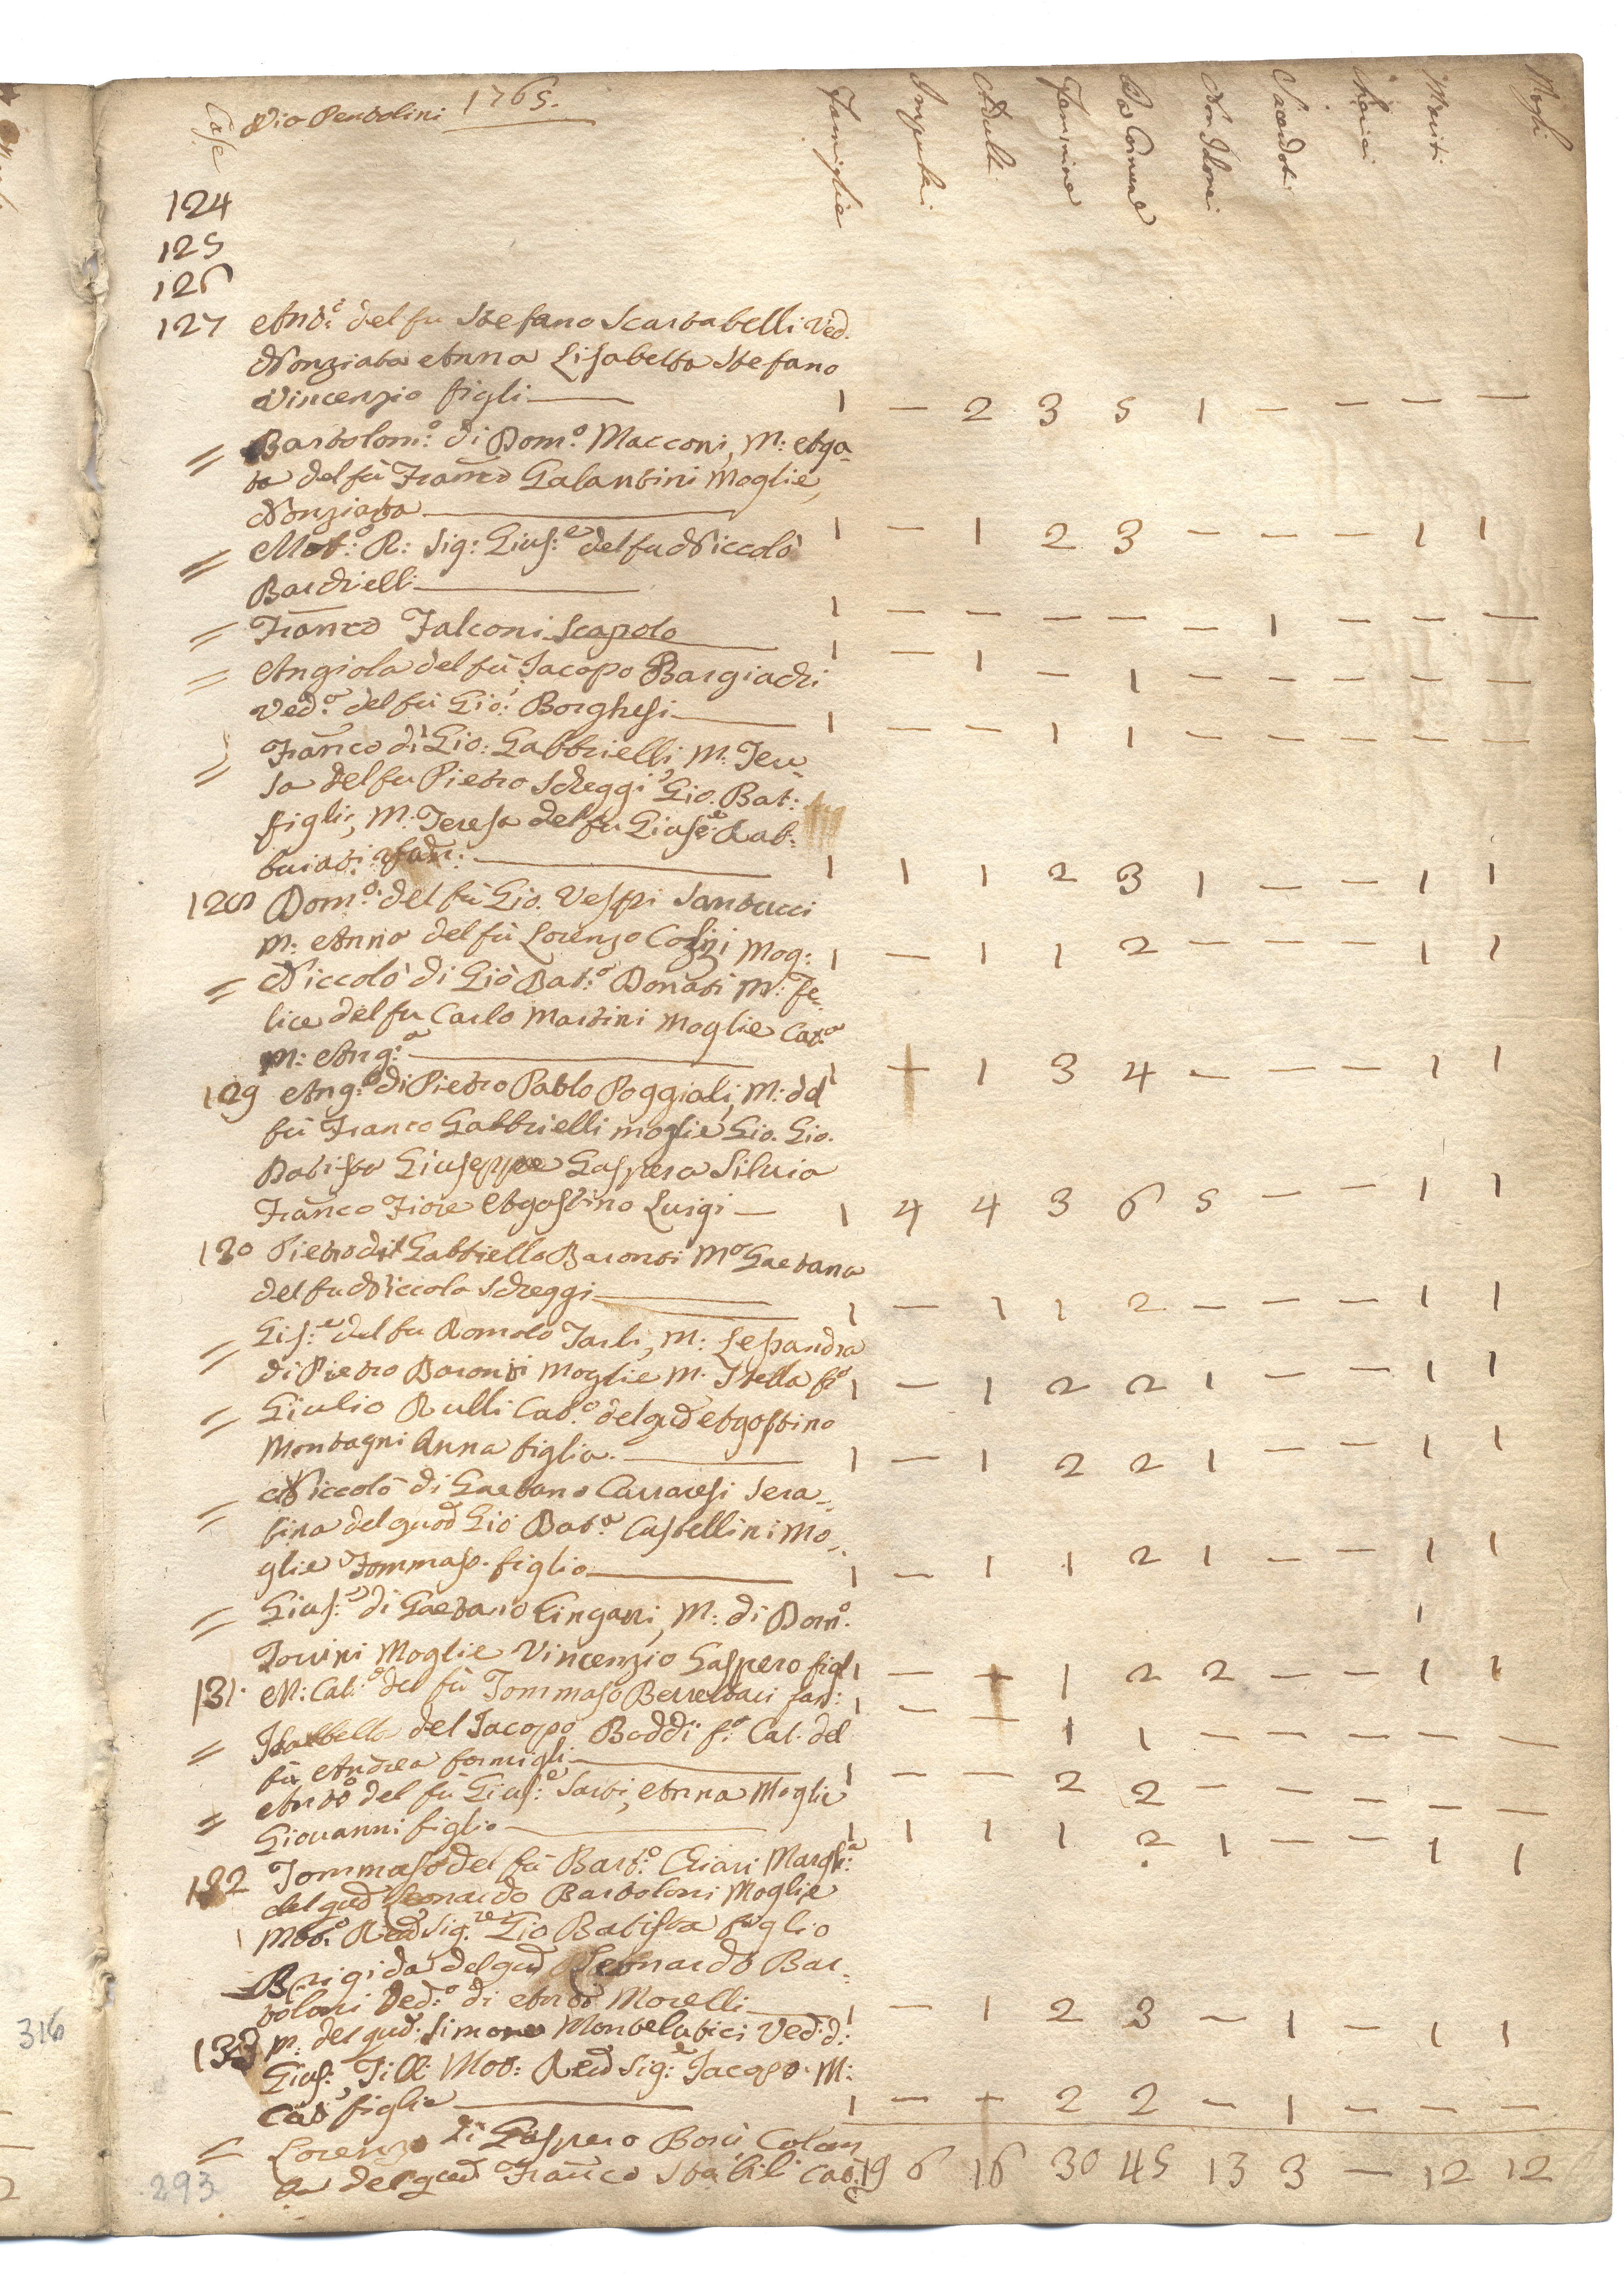 Case Via Pentolini 1765. Famiglie Impuberi Adulti Femmine Da Comune Non Idonei Sacerdoti Cherici Mariti Mogli
124
125
126
127 Ant.º del fu Stefano Scartabelli Ved.
Nonziata Anna Lisabetta Stefano
Vincenzio figli 1 — 2 3 5 1 — — — —
= Bartolom.º di Dom.º Macconi, M: Aga-
ta del fù Franco Galantini Moglie,
Nonziata 1 — 1 2 3 — — — 1 1
= Mol.º R: Sig: Gius.e del fu Niccolò
Bardzielli 1 — — — — — 1 — — —
= Franco Falconi Scapolo 1 — 1 — 1 — — — — —
= Angiola del fù Jacopo Bargiachi
Ved.a del fù Gio: Borghesi 1 — — 1 1 — — — — —
= Franco di Gio: Gabbrielli M. Tere-
sa del fu Pietro Scheggi Gio. Bat:
figli, M. Teresa del fu Gius.e Rab-
buiati 1 1 1 2 3 1 — — 1 1
128 Dom.º del fù Gio. Vespi Santucci
M: Anna del fù Lorenzo Cozzi Mog: 1 — 1 1 2 — — — 1 1
= Niccolò di Gio Bat.a Donati M: Fe-
lice del fu Carlo Martini Moglie Cat.a
M: Ang.a 1 — 1 3 4 — — — 1 1
129 Ang.º di Pietro Pablo Poggiali, M: del
fù Franco Gabbrielli moglie Gio. Gio.
Batista Giuseppe Gaspera Silvia
Franco Fiore Agostino Luigi — 1 4 4 3 6 5 — — 1 1
130 Pietro di Gabbriello Baronti M.a Gaetana
del fu Niccola Scheggi 1 — 1 1 2 — — — 1 1
= Gis.e del fu Romolo Tarli, M: Lesandra
di Pietro Baronti Moglie M. Stella f.a 1 — 1 2 2 1 — — 1 1
= Giulio Rulli Cat.a del qud Agostino
Montagni Anna figlia. 1 — 1 2 2 1 — — 1 1
= Niccolò di Gaetano Carraresi Sera-
fina del quod Gio Bat.a Castellini Mo-
glie Tommaso figlio 1 — 1 1 2 1 — — 1 1
= Gius.e di Gaetano Cingani, M: di Dom.º 1
Tovini Moglie Vincenzio Gaspero figl 1 — + 1 2 2 — — 1 1
131. M: Cat.a del fù Tommaso Berrettari fan: 1 — — 1 1 — — — — —
= Isabella del Jacopo Boddi f.a Cat. del
fù Andrea formigli 1 — — 2 2 — — — — —
= Antº del fù Gius.e Sarti, Anna Moglie
Giovanni figlio 1 1 1 1 2 1 — — 1 1
132 Tommaso del fù Bart.º Chiari Margh.a
del qud Leonardo Bartoloni Moglie
Mol.º Red Sig.re Gio Batista figlio
Brigida del qud Leonardo Bar-
toloni Ved.a di Antº Morelli 1 — 1 2 3 — 1 — 1 1
133 M: del qud: Simone Montelatici Ved: d:
Gius: Tilli Mol: Red Sig.e Jacopo M:
Cat.a figlie 1 — + 2 2 — 1 — — —
= Lorenzo di Gaspero Borù Colom
a del qud Franco Stabili Cat: 19 6 16 30 45 13 3 — 12 12
316
293